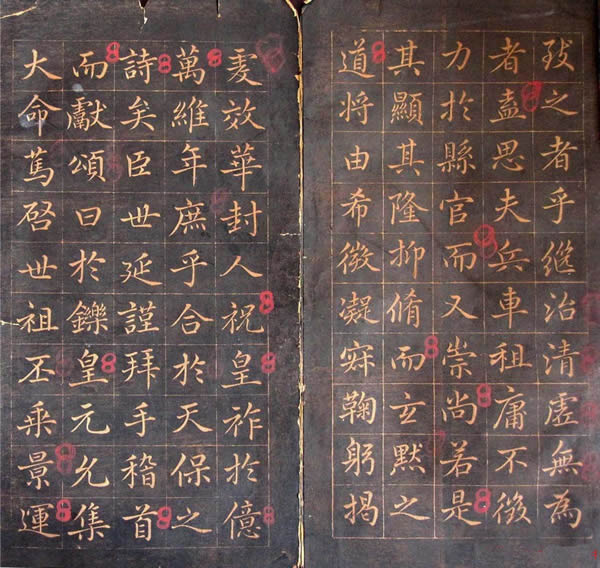 致之者乎継治清虛無為
者盍思夫兵車租庸不徵
力於縣官而又崇尚若是
其顯其隆抑脩而玄默之
道将由希微凝寂鞠躬揭
虔效華封人祝皇祚於億
萬維年庶乎合於天保之
詩矣臣世延謹拜手稽首
而獻頌曰於鑠皇元允集
大命篤啓世祖丕乘景運